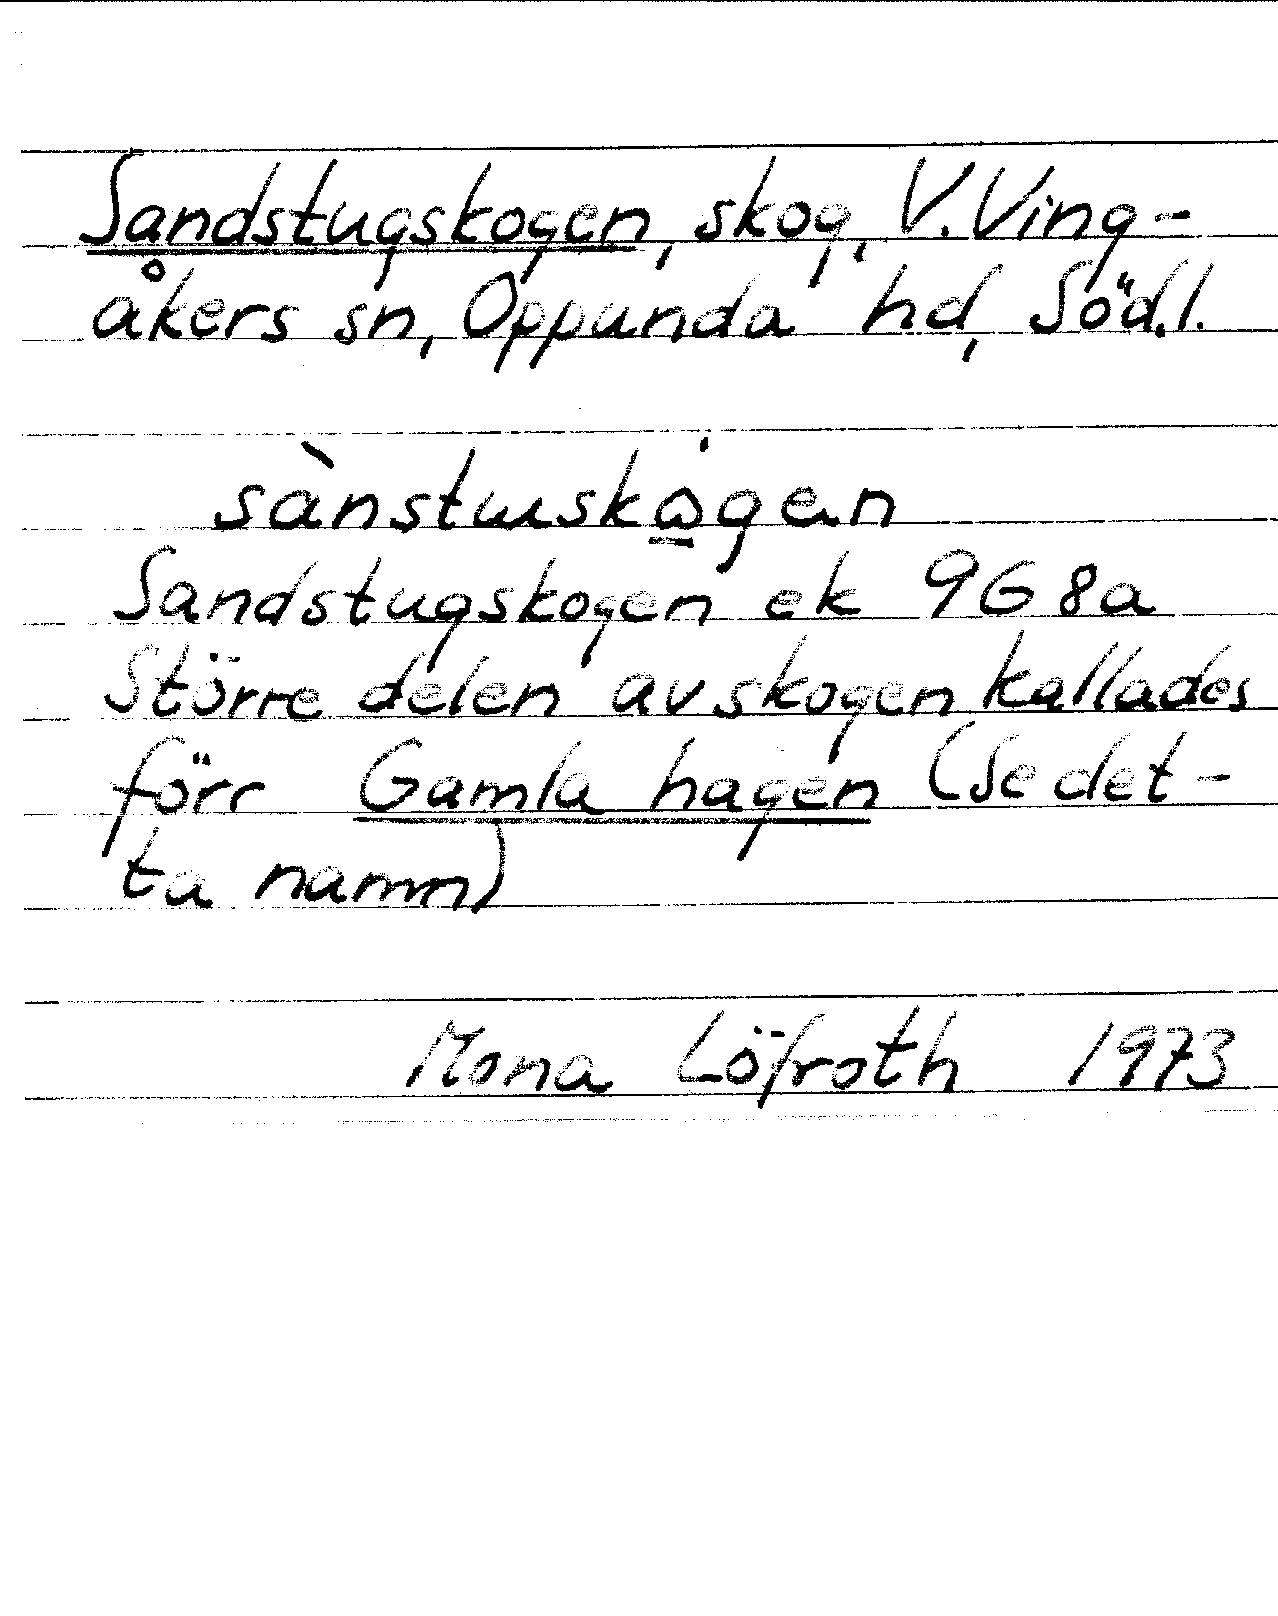 Sandstugskogen, skog, V. Ving-
åkers sn, Oppunda hd, Söd.l.
Sandstugskogen ek 9G8a
Större delen av skogen kallades
förr Gamla hagen (Se det-
ta namn)
Mona Löfroth 1973